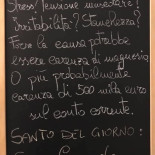 Stress? Tensione muscolare?
Irritabilità? Stanchezza?
Forse la causa potrebbe
essere carenza di magnesio.
O più probabilmente
carenza di 500 mila euro
sul conto corrente.
SANTO DEL GIORNO: